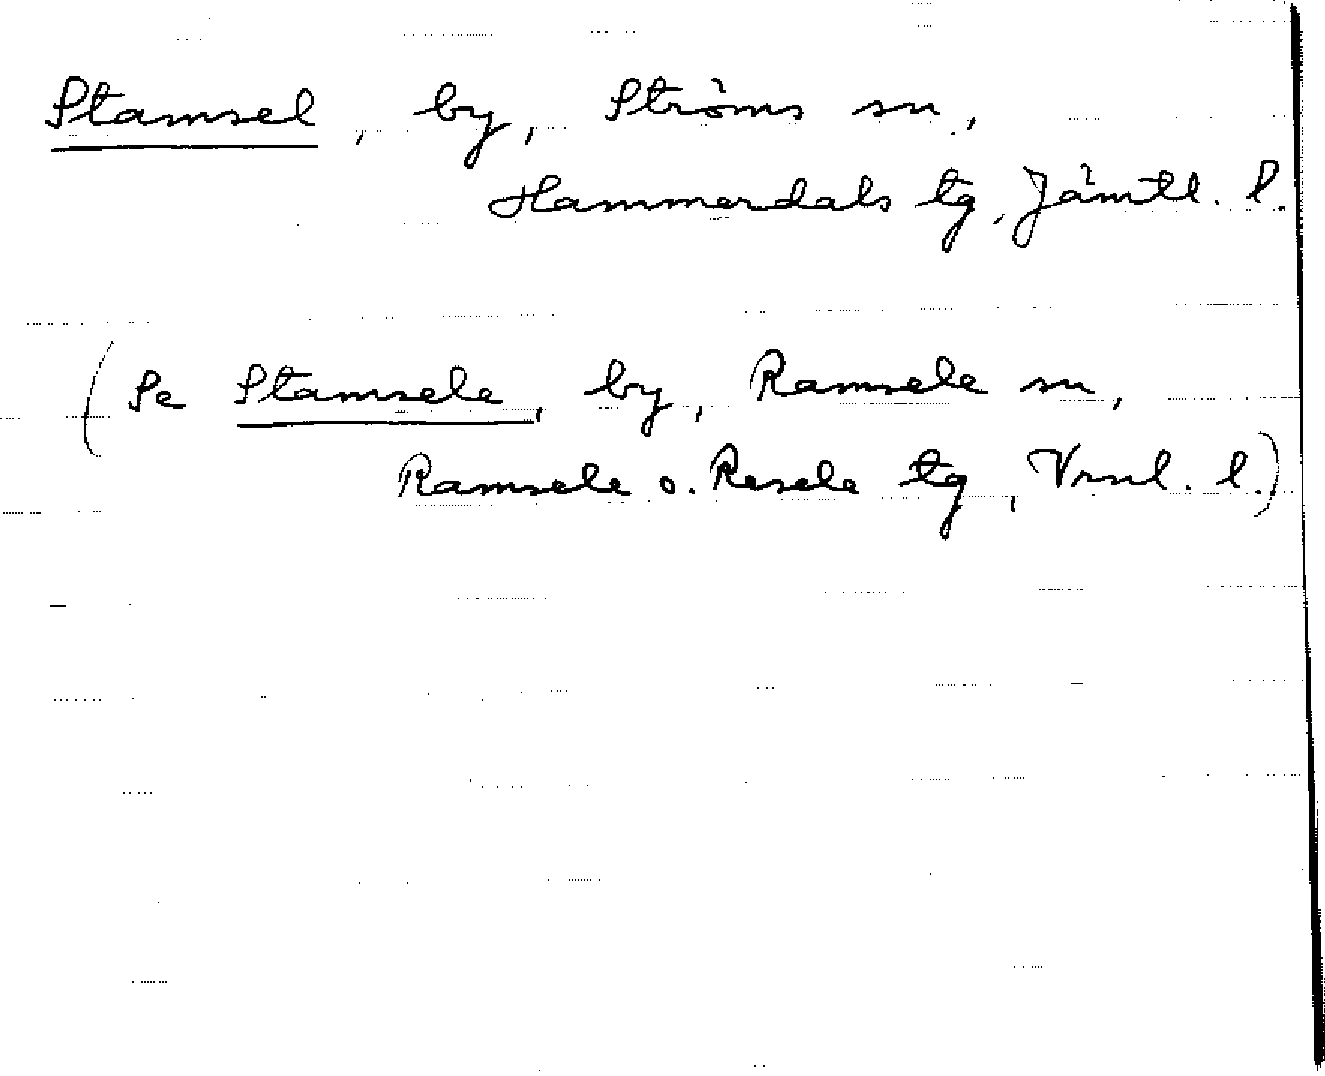 Stamsel, by, Ströms sn,
Hammerdals tg, Jämtl. l.
(Se Stamsele, by, Ramsele sn,
Ramsele o. Resele tg, Vrnl. l.)